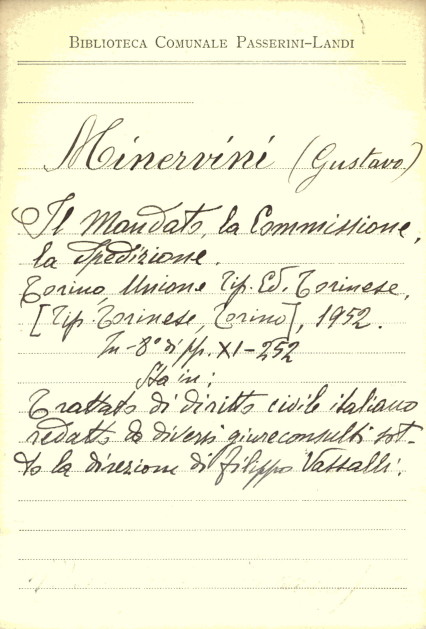 BIBLIOTECA COMUNALE PASSERINI-LANDI
Minervini (Gustavo)
Il Mandato, la Commissione,
la Spedizione.
Torino, Unione Tip. Ed. Torinese,
[Tip. Torinese, Torino], 1952.
In-8° di pp. XI-252
Sta in:
Trattato di diritto civile italiano
redatto da diversi giureconsulti sot-
to la direzione di Filippo Vassalli.